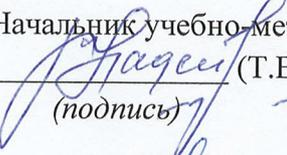 Начальник учебно-ме
(Т.Е
(подпись)